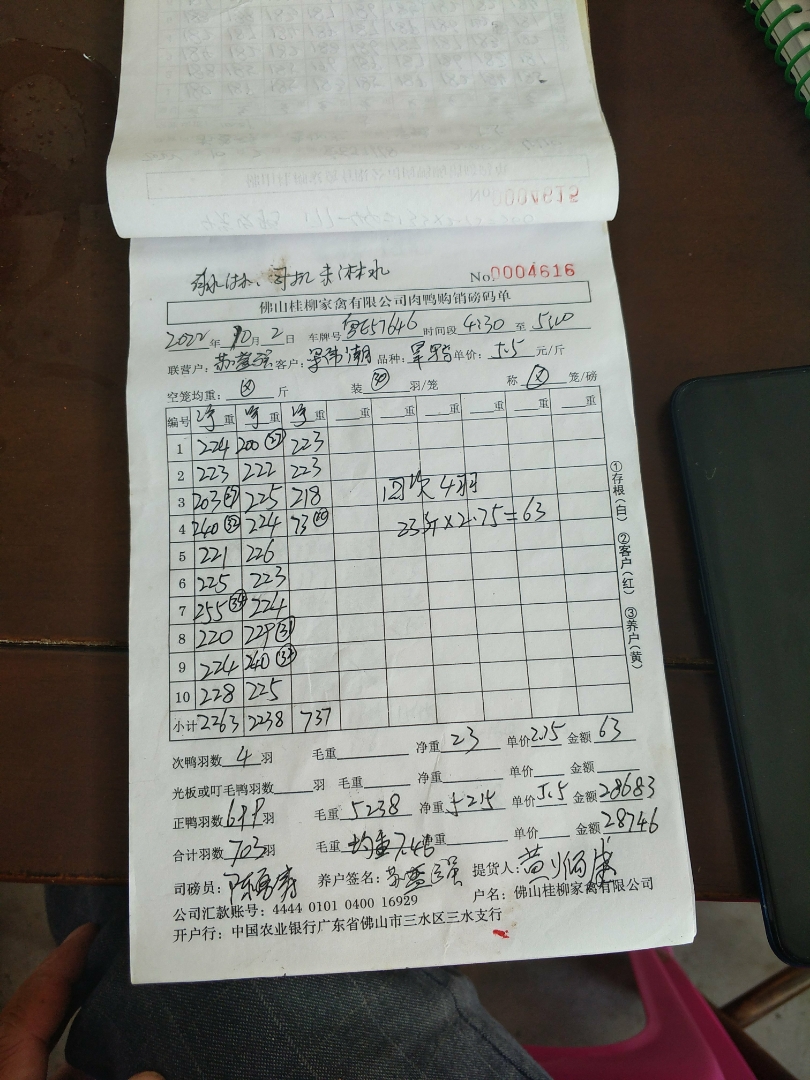 No.0004616
佛山桂柳家禽有限公司肉鸭购销磅码单
2022年10月2日 车牌号粤E57646 时间段4:30至5:10
联营户: 客户:梁伟潮 品种: 单价:5.5元/斤
空笼均重:斤 装羽/笼 称笼/磅
编号 净重 净重 净重 重 重 重 重 重 重
1 224 200 223
2 223 222 223
3 203 225 218 回次4羽
4 240 224 73 23斤×2.75=63
5 221 226
6 225 223
7 255 224
8 220 229
9 224 240
10 228 225
小计 2263 2238 737
①存根(白) ②客户(红) ③养户(黄)
次鸭羽数4羽 毛重 净重23 单价2.75 金额63
光板或叮毛鸭羽数羽 毛重 净重 单价 金额
正鸭羽数699羽 毛重5238 净重5215 单价5.5 金额28683
合计羽数703羽 毛重均重7.46 净重 单价 金额28746
司磅员: 养户签名: 提货人:
公司汇款账号:4444 0101 0400 16929 户名:佛山桂柳家禽有限公司
开户行:中国农业银行广东省佛山市三水区三水支行